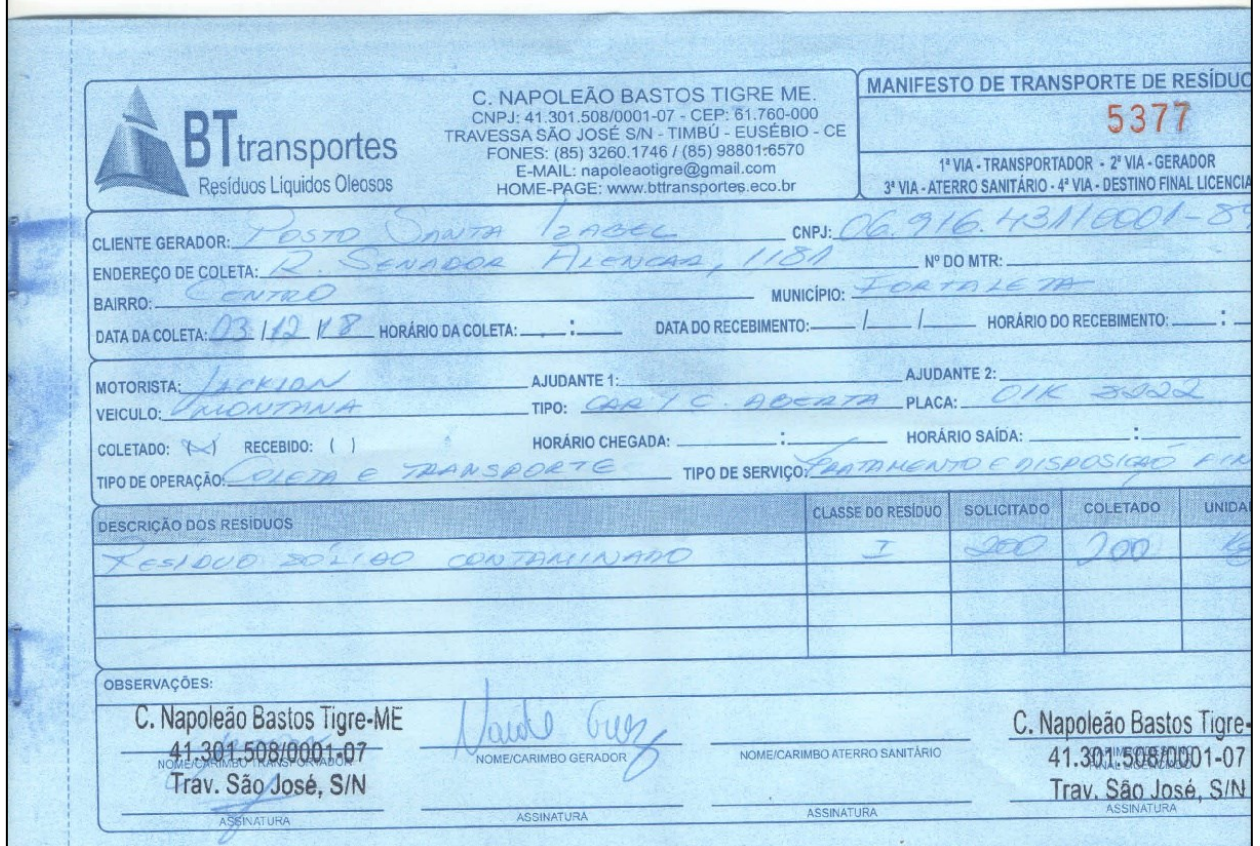 C. NAPOLEÃO BASTOS TIGRE ME.
CNPJ: 41.301.508/0001-07 - CEP: 61.760-000
TRAVESSA SÃO JOSÉ S/N - TIMBÚ - EUSÉBIO - CE
FONES: (85) 3260.1746 / (85) 98801.6570
E-MAIL: napoleaotigre@gmail.com
HOME-PAGE: www.bttransportes.eco.br
BTtransportes
Resíduos Líquidos Oleosos
MANIFESTO DE TRANSPORTE DE RESÍDUO
5377
1ª VIA - TRANSPORTADOR - 2ª VIA - GERADOR
3ª VIA - ATERRO SANITÁRIO - 4ª VIA - DESTINO FINAL LICENCIA
CLIENTE GERADOR: POSTO SANTA IZABEL CNPJ: 06.916.431/0001-8
ENDEREÇO DE COLETA: R. SENADOR ALENCAR, Nº DO MTR:
BAIRRO: CENTRO MUNICÍPIO: FORTALEZA
DATA DA COLETA: 03/12/18 HORÁRIO DA COLETA: : DATA DO RECEBIMENTO: / / HORÁRIO DO RECEBIMENTO: :
MOTORISTA: AJUDANTE 1: AJUDANTE 2:
VEICULO: MONTANA TIPO: ABERTA PLACA:
COLETADO: (X) RECEBIDO: ( ) HORÁRIO CHEGADA: : HORÁRIO SAÍDA: :
TIPO DE OPERAÇÃO: COLETA E TRANSPORTE TIPO DE SERVIÇO: TRATAMENTO E DISPOSIÇÃO FIN
DESCRIÇÃO DOS RESÍDUOS CLASSE DO RESÍDUO SOLICITADO COLETADO UNIDA
RESÍDUO SÓLIDO CONTAMINADO I 200 200 Kg
OBSERVAÇÕES:
C. Napoleão Bastos Tigre-ME
41.301.508/0001-07
NOME/CARIMBO TRANSPORTADOR
Trav. São José, S/N
ASSINATURA
NOME/CARIMBO GERADOR
ASSINATURA
NOME/CARIMBO ATERRO SANITÁRIO
ASSINATURA
C. Napoleão Bastos Tigre-
41.301.508/0001-07
Trav. São José, S/N
ASSINATURA